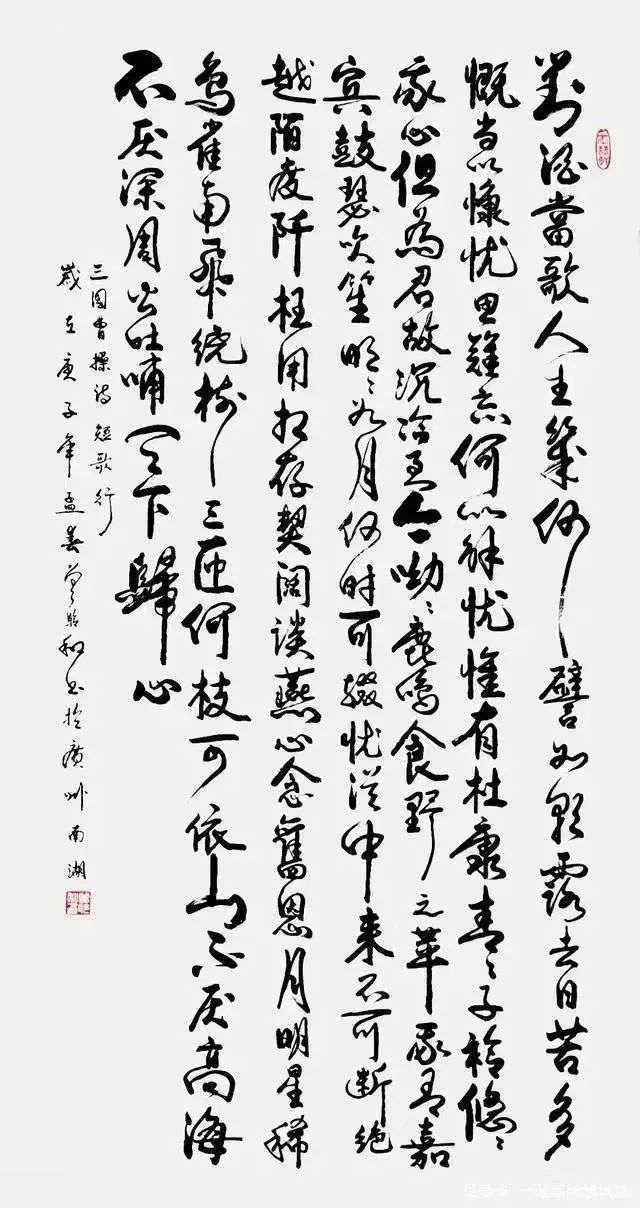 對酒當歌人生幾何譬如朝露去日苦多
慨当以慷忧思難忘何以解忧惟有杜康青〻子衿悠〻
我心但為君故沉吟至今呦〻鹿鳴食野之苹我有嘉
宾鼓瑟吹笙明〻如月何时可掇忧從中来不可断絶
越陌度阡枉用相存契阔談燕心念舊恩月明星稀
烏雀南飛繞樹三匝何枝可依山不厌高海
不厌深周公吐哺天下歸心
三國曹操诗短歌行
歲在庚子年孟春和书於廣州南湖